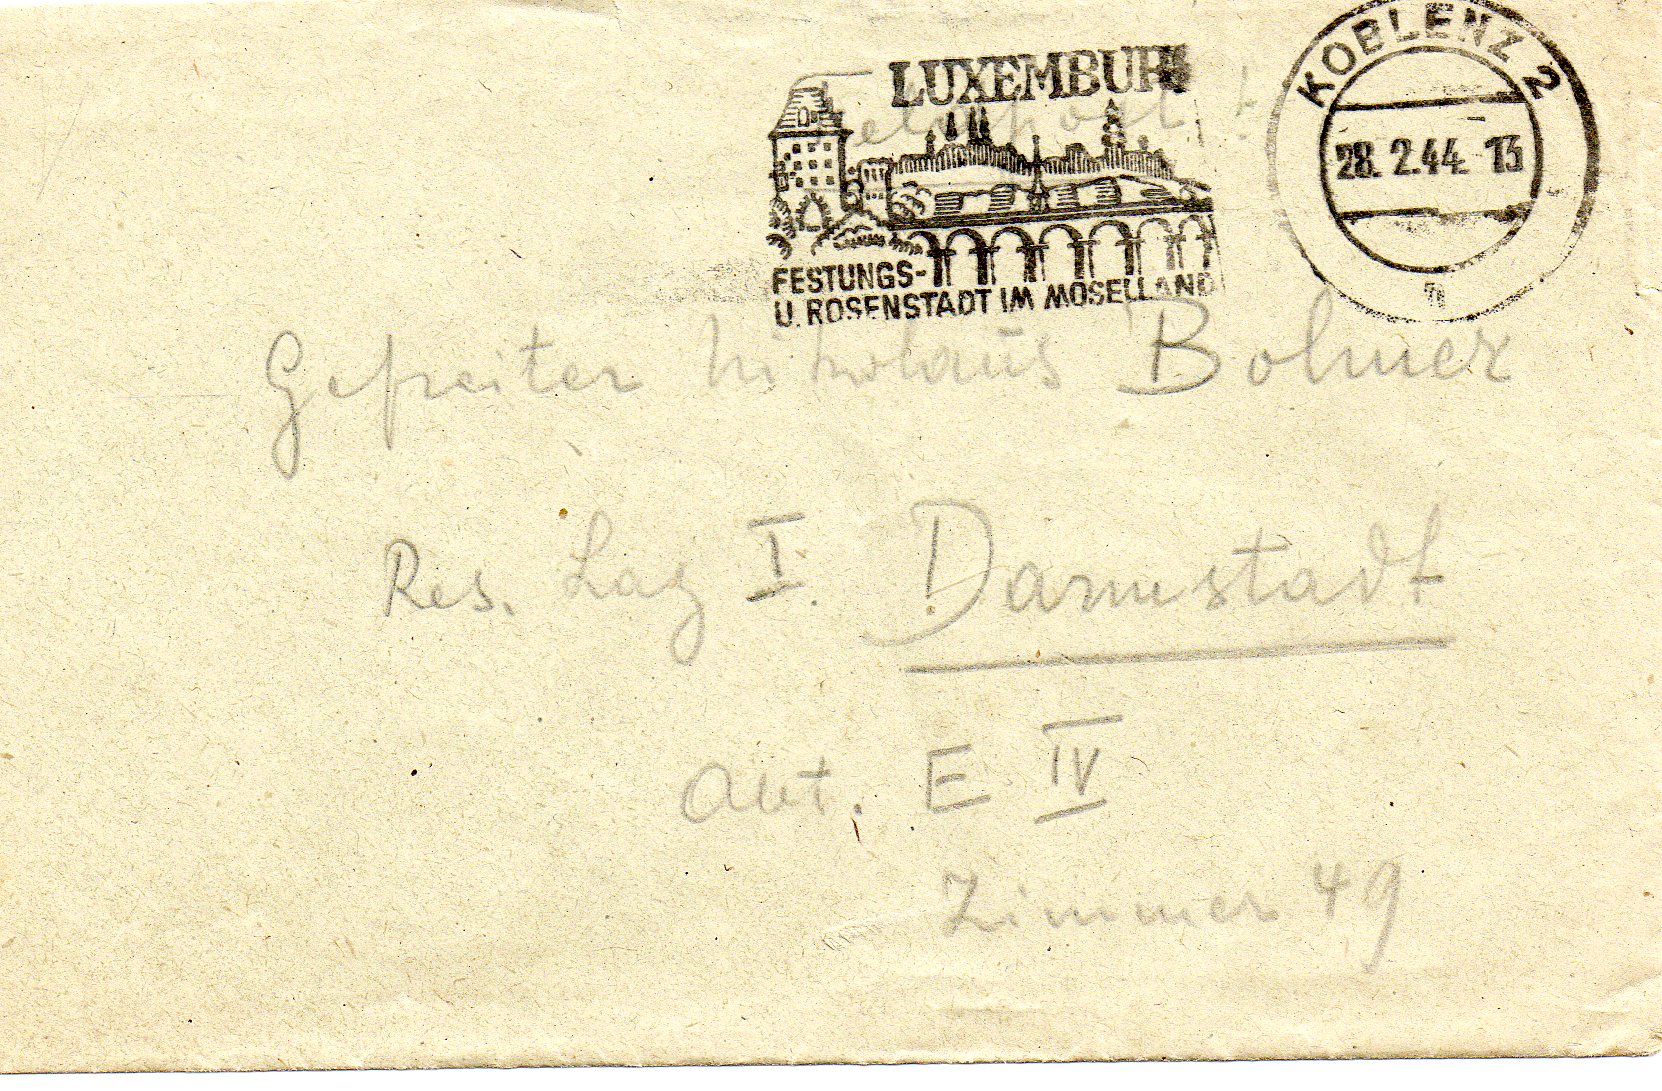 LUXEMBURG
Feldpost!
KOBLENZ 2
28. 2.44. 13
FESTUNGS-
U. ROSENSTADT IM MOSELLAND
Gefreiter Nikolaus Bohmer
Res. Laz I. Darmstadt
Abt. E IV
Zimmer 49